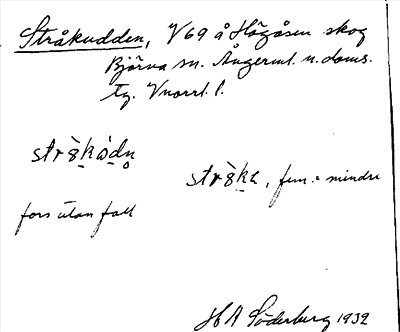 Stråkudden, V69 å Högåsen skog
Björna sn. Ångerml. n. doms.
tg. Vnorrl. l.
stràkòdn̥
stràka, fem. = mindre
fors utan fall
H A Söderberg 1932